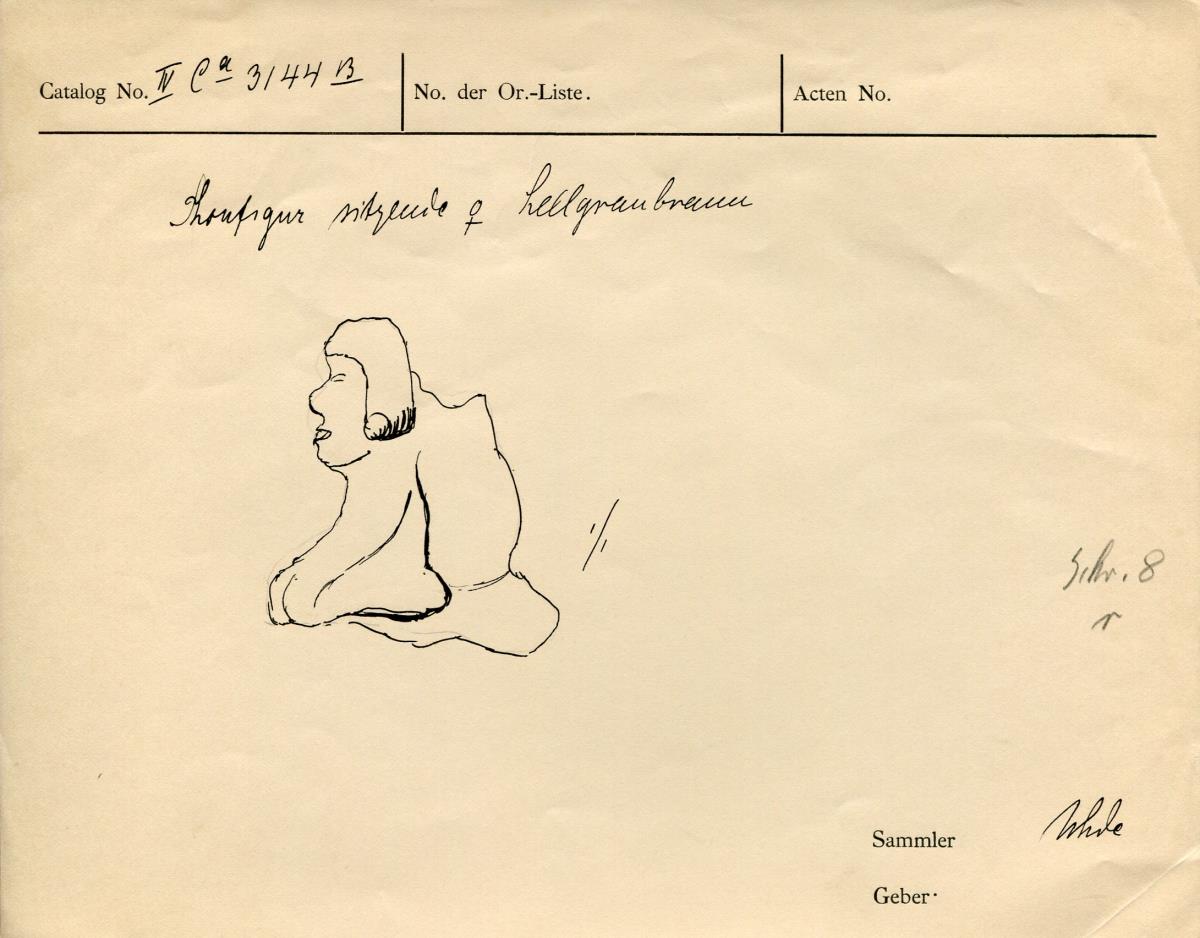 Catalog No. IV Ca 3144 B
No. der Or.-Liste.
Acten No.
Thonfigur sitzende ♀ hellgraubraun
1/1
Schr. 8
r
Sammler Uhde
Geber